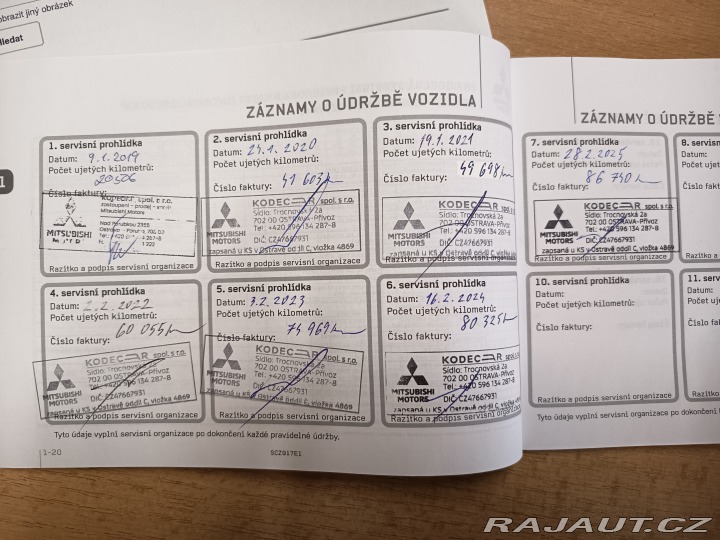 obrazit jiný obrázek
ledat
ZÁZNAMY O ÚDRŽBĚ VOZIDLA
1. servisní prohlídka
Datum: 9.1.2019
Počet ujetých kilometrů:
20506
Číslo faktury:
KODECAR, spol. s r.o.
zastoupení - prodej - servis
Mitsubishi Motors
Nad Porubkou 2355
MITSUBISHI
Razítko a podpis servisní organizace
2. servisní prohlídka
Datum: 24.1.2020
Počet ujetých kilometrů:
41 603
Číslo faktury:
KODECAR spol. s r.o.
Sídlo: Trocnovská 2a
702 00 OSTRAVA-Přívoz
Tel.: +420 596 134 287-8
DIČ: CZ47667931
zapsaná u KS v Ostravě oddíl C, vložka 4869
MITSUBISHI
MOTORS
Razítko a podpis servisní organizace
3. servisní prohlídka
Datum: 19.1.2021
Počet ujetých kilometrů:
49 698
Číslo faktury:
KODECAR spol. s r.o.
Sídlo: Trocnovská 2a
702 00 OSTRAVA-Přívoz
Tel.: +420 596 134 287-8
DIČ: CZ47667931
zapsaná u KS v Ostravě oddíl C, vložka 4869
MITSUBISHI
MOTORS
Razítko a podpis servisní organizace
4. servisní prohlídka
Datum: 2.2.2022
Počet ujetých kilometrů:
60 055
Číslo faktury:
KODECAR spol. s r.o.
Sídlo: Trocnovská 2a
702 00 OSTRAVA-Přívoz
Tel.: +420 596 134 287-8
DIČ: CZ47667931
zapsaná u KS v Ostravě oddíl C, vložka 4869
MITSUBISHI
MOTORS
Razítko a podpis servisní organizace
5. servisní prohlídka
Datum: 3.2.2023
Počet ujetých kilometrů:
74 969
Číslo faktury:
KODECAR spol. s r.o.
Sídlo: Trocnovská 2a
702 00 OSTRAVA-Přívoz
Tel.: +420 596 134 287-8
DIČ: CZ47667931
zapsaná u KS v Ostravě oddíl C, vložka 4869
MITSUBISHI
MOTORS
Razítko a podpis servisní organizace
6. servisní prohlídka
Datum: 16.2.2024
Počet ujetých kilometrů:
80 325
Číslo faktury:
KODECAR spol.
Sídlo: Trocnovská 2a
702 00 OSTRAVA-Přívoz
Tel.: +420 596 134 287-8
DIČ: CZ47667931
zapsaná u KS v Ostravě oddíl C, vložka 4869
MITSUBISHI
MOTORS
Razítko a podpis servisní organizace
Tyto údaje vyplní servisní organizace po dokončení každé pravidelné údržby.
1-20
SCZ017E1
1
ZÁZNAMY O ÚDRŽBĚ
7. servisní prohlídka
Datum: 28.2.2025
Počet ujetých kilometrů:
86 740
Číslo faktury:
KODECAR spol. s r.o.
Sídlo: Trocnovská 2a
702 00 OSTRAVA-Přívoz
Tel.: +420 596 134 287-8
DIČ: CZ47667931
zapsaná u KS v Ostravě oddíl C, vložka 4869
MITSUBISHI
MOTORS
Razítko a podpis servisní organizace
8. servisn
Datum:
Počet uje
Číslo fak
Razítko
10. servisní prohlídka
Datum:
Počet ujetých kilometrů:
Číslo faktury:
Razítko a podpis servisní organizace
11. ser
Datum
Počet
Číslo
Razít
Tyto údaje vyplní servisní organizace po dokončení
RAJAUT.CZ